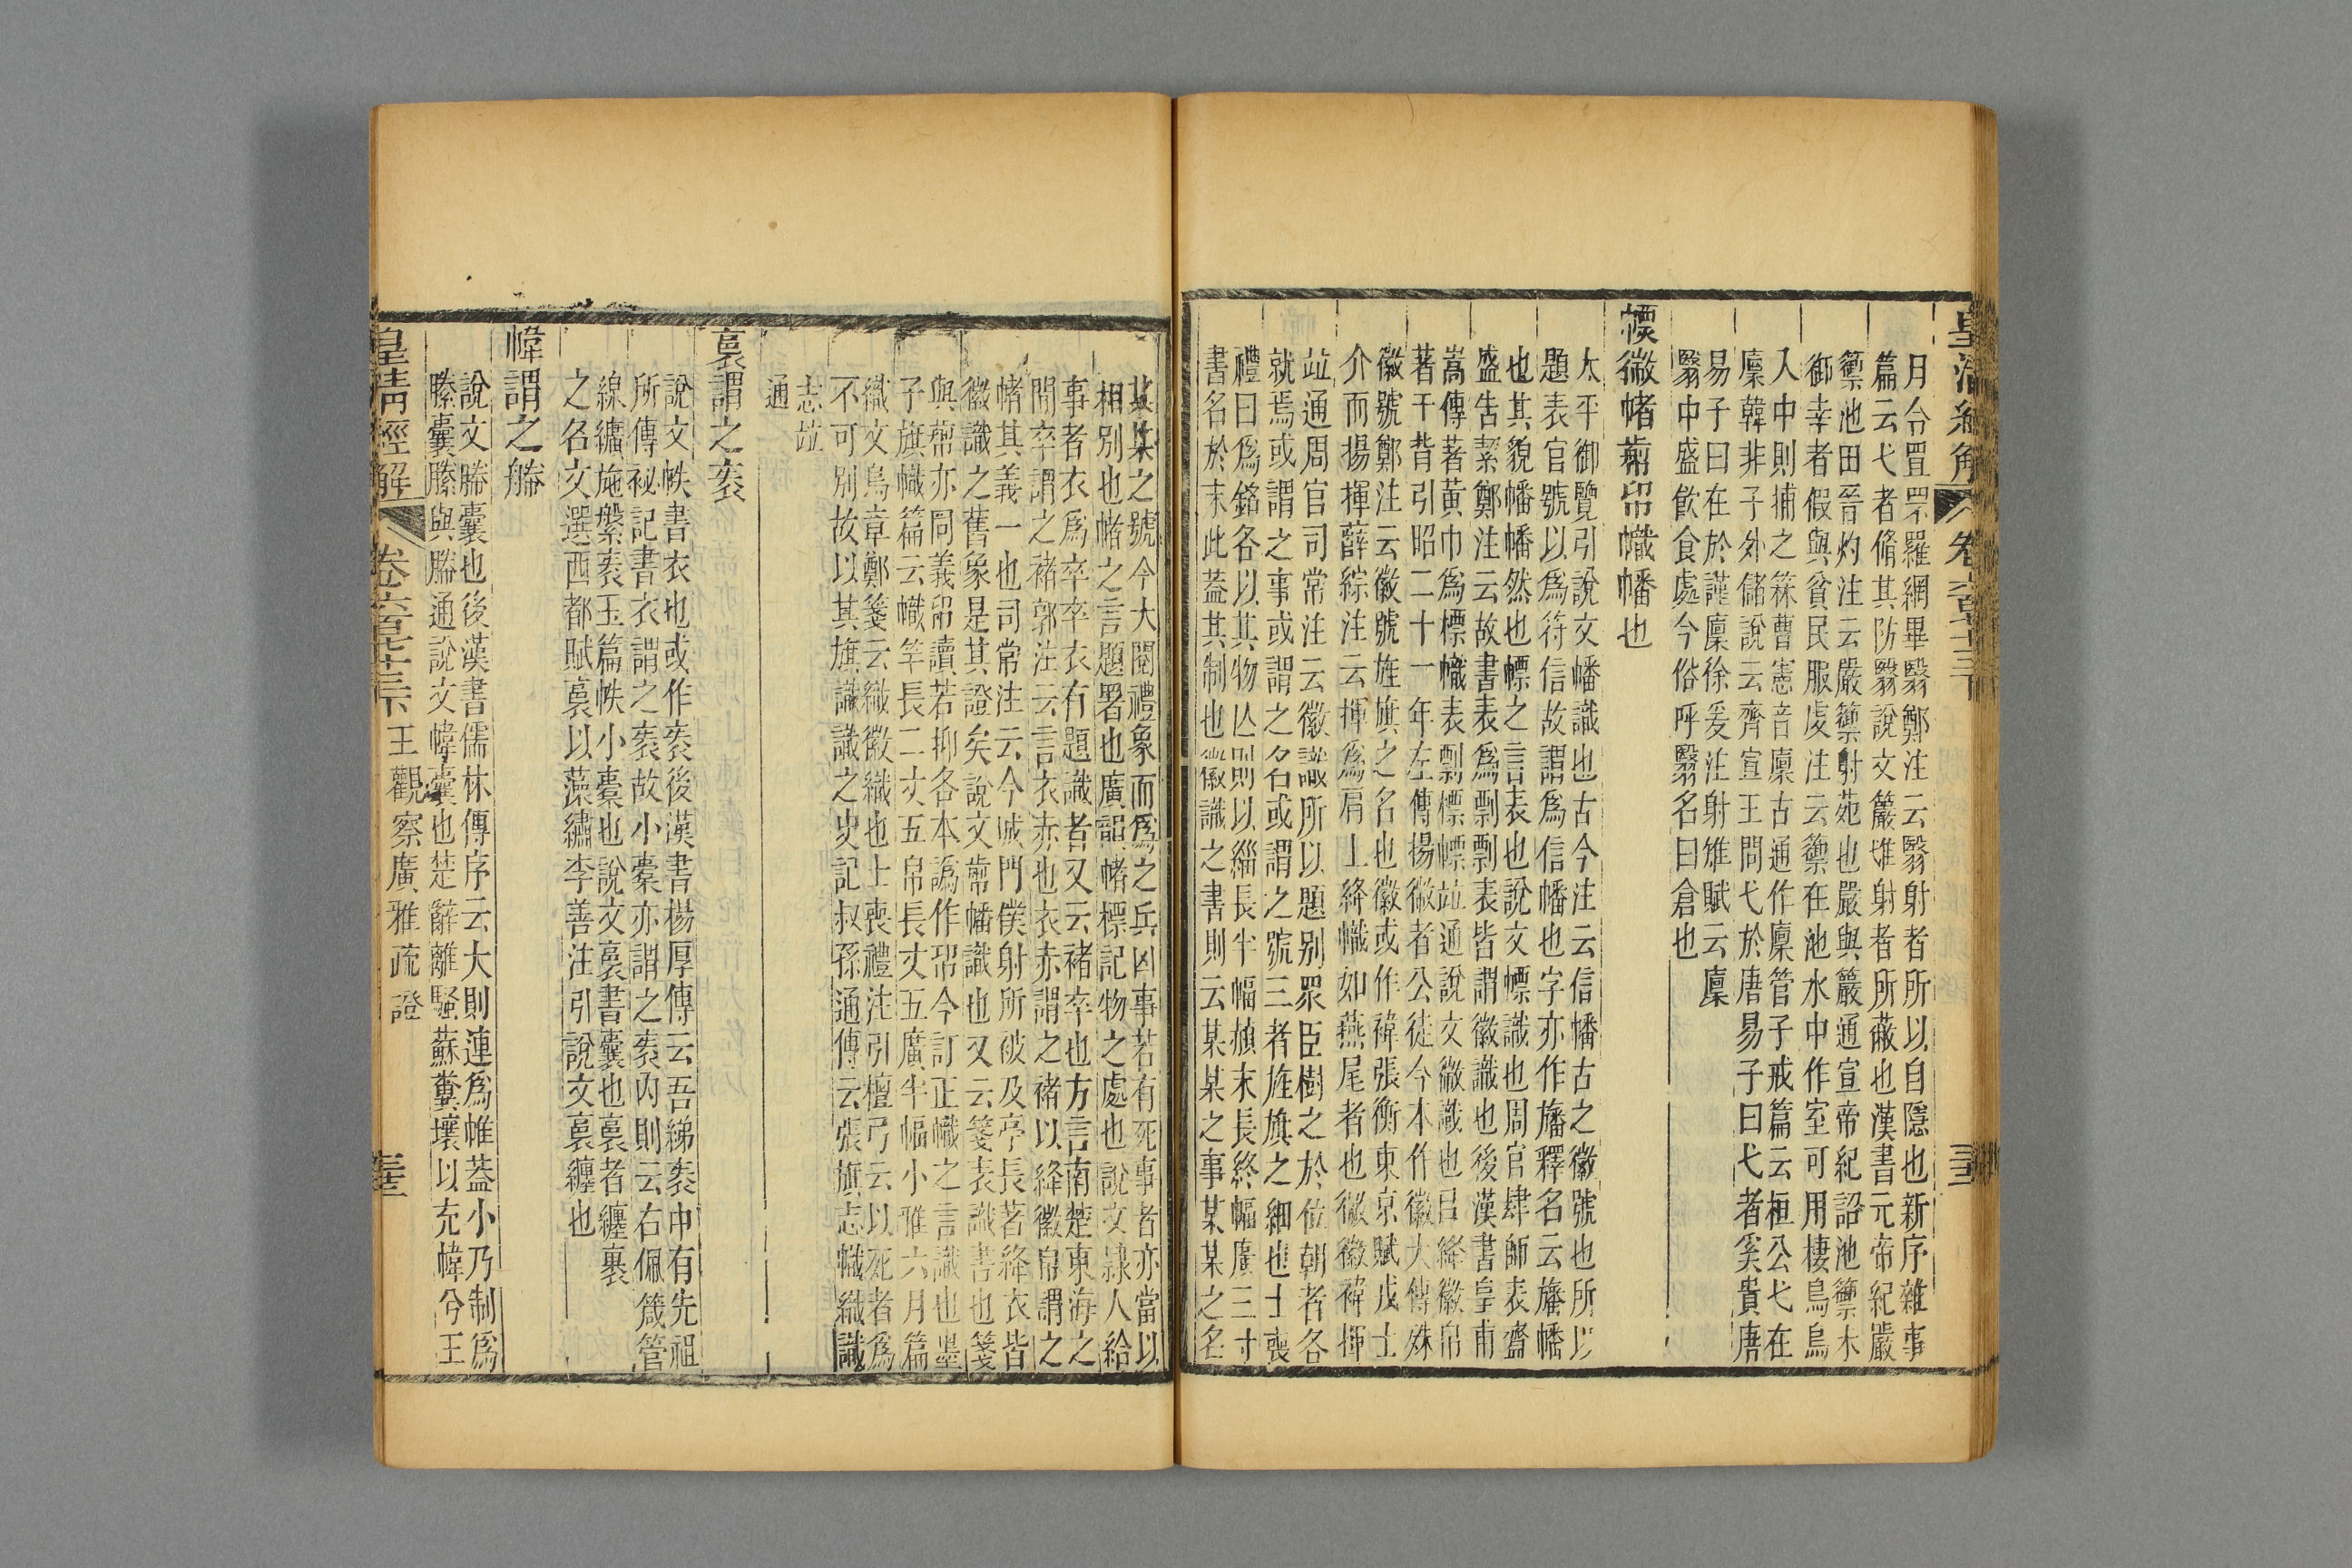 皇清經解
月令罝罘羅網畢翳鄭注云翳射者所以自隱也新序雜事
篇云弋者脩其防翳說文䉷惟射者所蔽也漢書元帝紀嚴
籞池田晉灼注云嚴籞射苑也嚴與䉷通宣帝紀詔池籞未
御幸者假與貧民服虔注云籞在池水中作室可用棲鳥鳥
入中則捕之箖曹憲音廩古通作廩管子戒篇云桓公弋在
廩韓非子外儲說云齊宣王問弋於唐易子曰弋者奚貴唐
易子曰在於謹廩徐爰注射雉賦云廩
翳中盛飮食處今俗呼翳名曰倉也
幖徽幮㡜㠲幟幡也
太平御覽引說文幡識也古今注云信幡古之徽號也所以
題表官號以爲符信故謂爲信幡也字亦作旛釋名云旛幡
也其貌幡幡然也幖之言表也說文幖識也周官肆師表齋
盛告絜鄭注云故書表爲剽剽表皆謂徽識也後漢書皇甫
嵩傳著黃巾爲標幟表剽標幖竝通說文㣲識也㠯絳徽帛
著于背引昭二十一年左傳揚㣲者公徒今本作徽大傳殊
徽號鄭注云徽號旌旗之名也徽或作褘張衡東京賦戎士
介而揚揮薛綜注云揮爲肩上絳幟如燕尾者也㣲徽褘揮
竝通周官司常注云徽識所以題别眾臣樹之於位朝者各
就焉或謂之事或謂之名或謂之號三者旌旗之細也士喪
禮曰爲銘各以其物亾則以緇長半幅䞓末長終幅廣三寸
書名於末此蓋其制也徽識之書則云某某之事某某之名
某某之號今大閱禮象而爲之兵凶事若有死事者亦當以
相別也幮之言題署也廣韻幮標記物之處也說文隷人給
事者衣爲卒卒衣有題識者又云褚卒也方言南楚東海之
間卒謂之褚郭注云言衣赤也衣赤謂之褚以絳徽帛謂之
幮其義一也司常注云今城門僕射所被及亭長著絳衣皆
徽識之舊象是其證矣說文㡜幡識也又云箋表識書也箋
與㡜亦同義㠲讀若抑各本譌作帤今訂正幟之言識也墨
子旗幟篇云幟竿長二丈五帛長丈五廣半幅小雅六月篇
織文鳥章鄭箋云織徽織也士喪禮注引檀弓云以死者爲
不可別故以其旗識識之史記叔孫通傳云張旗志幟織識
志竝
通
裛謂之袠
說文帙書衣也或作袠後漢書楊厚傳云吾綈袠中有先祖
所傳祕記書衣謂之袠故小橐亦謂之袠內則云右佩箴管
線纊施縏袠玉篇帙小橐也說文裛書囊也裛者纏裹
之名文選西都賦裛以藻繡李善注引說文裛纏也
幃謂之幐
說文幐囊也後漢書儒林傳序云大則連爲帷蓋小乃制爲
縢囊縢與幐通說文幃囊也楚辭離騷蘇糞壤以充幃兮王
皇清經解 卷六百七十三下 王觀察廣雅疏證